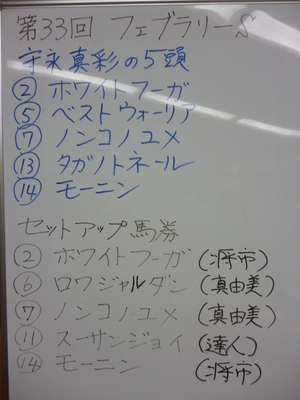 第33回 フェブラリーS
守永真彩の5頭
② ホワイトフーガ
⑤ ベストウォーリア
⑦ ノンコノユメ
⑬ タガノトネール
⑭ モーニン
セットアップ馬券
② ホワイトフーガ (将市)
⑥ ロワジャルダン (真由美)
⑦ ノンコノユメ (真由美)
⑪ スーサンジョイ (達人)
⑭ モーニン (将市)